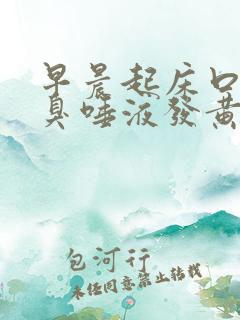 早晨起床口
臭唾液發黃
包河行
未经同意禁止转载